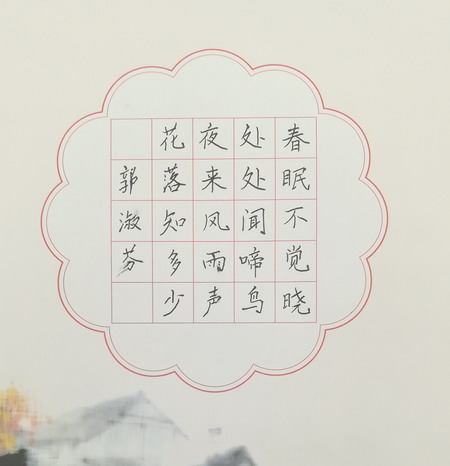 春眠不觉晓
处处闻啼鸟
夜来风雨声
花落知多少
郭淑芬